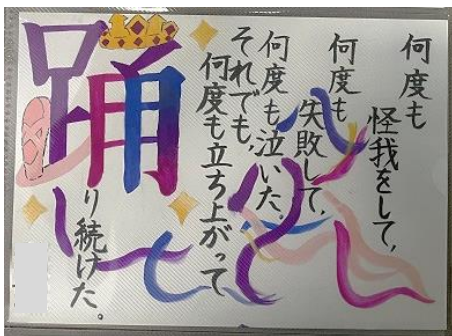 何度も
怪我をして、
何度も
失敗して、
何度も泣いた。
それでも、
何度も立ち上がって
踊り続けた。